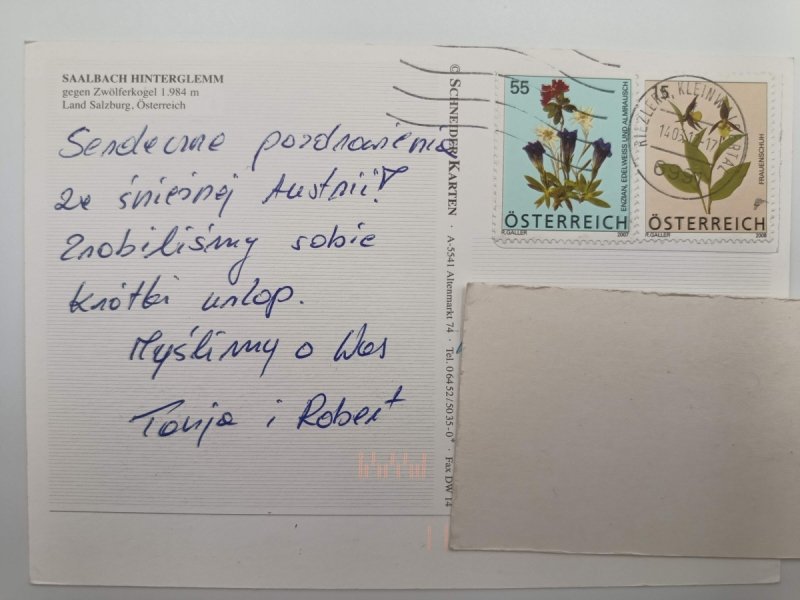 SAALBACH HINTERGLEMM
gegen Zwölferkogel 1.984 m
Land Salzburg, Österreich
Serdeczne pozdrowienia
ze śnieżnej Austrii!
Zrobiliśmy sobie
krótki urlop.
Myślimy o Was
Tanja i Robert
© SCHNEIDER KARTEN · A-5541 Altenmarkt 74 · Tel. 06452/5035-0* · Fax DW 14
55
ENZIAN, EDELWEISS UND ALMRAUSCH
ÖSTERREICH
R.GALLER
2007
15
FRAUENSCHUH
ÖSTERREICH
R.GALLER
2008
RIEZLERN, KLEINWALSERTAL